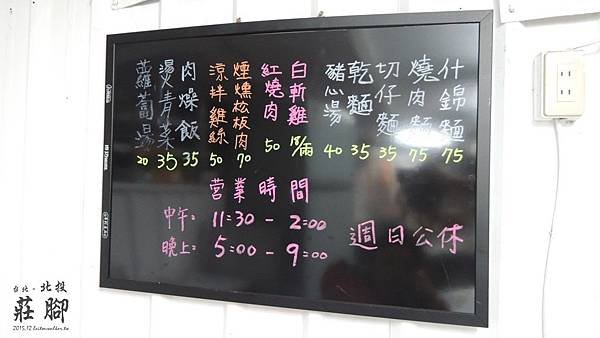 什錦麵 75
燒肉麵 75
切仔麵 35
乾麵 35
豬心湯 40
白斬雞 18/兩
紅燒肉 50
煙燻松板肉 70
涼拌雞絲 50
肉燥飯 35
燙青菜 35
蘿蔔湯 20
营業時間
中午: 11:30 - 2:00
晚上: 5:00 - 9:00
週日公休
台北·北投
莊腳